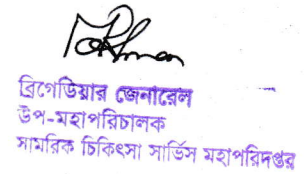 ব্রিগেডিয়ার জেনারেল
উপ-মহাপরিচালক
সামরিক চিকিৎসা সার্ভিস মহাপরিদপ্তর